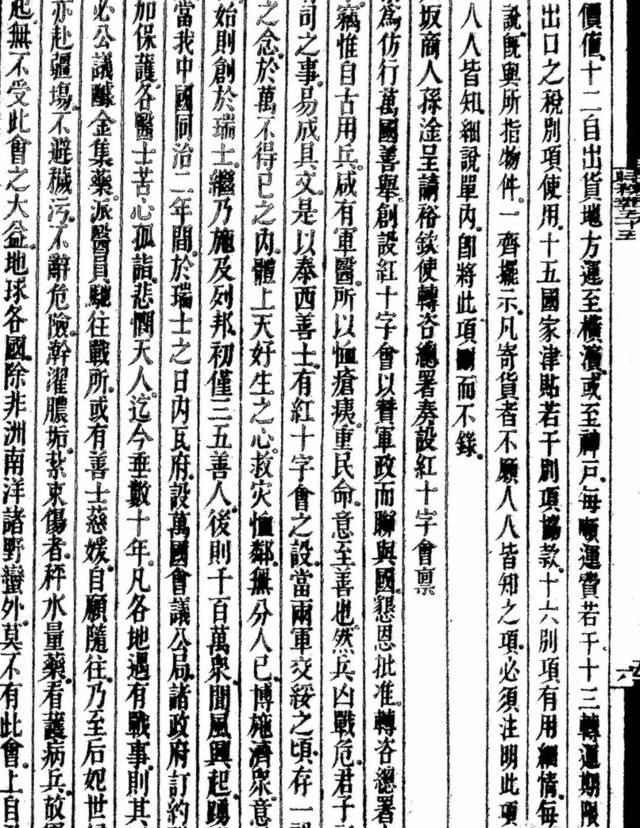 價値十二自出貨地方運至橫濱或至神戶每噸運費若干十三轉運期限
出口之稅別項使用十五國家津貼若干別項協款十六別項有用細情每
說旣與所指物件一齊擺示凡寄貨者不願人人皆知之項必須注明此項
人人皆知細說單內卽將此項刪而不錄
坂商人孫淦呈請裕欽使轉咨總署奏設紅十字會禀
爲仿行萬國善舉創設紅十字會以贊軍政而聯與國懇恩批准轉咨總署
竊惟自古用兵咸有軍醫所以恤瘡痍重民命意至善也然兵凶戰危君子
司之事易成具文是以泰西善士有紅十字會之設當兩軍交綏之頃存一
之念於萬不得已之內體上天好生之心救灾恤鄰無分人己博施濟眾意
始則創於瑞士繼乃施及列邦初僅三五善人後則千百萬衆聞風興起踴
當我中國同治二年間於瑞士之日內瓦府設萬國會議公局諸政府訂約
加保護各醫士苦心孤詣悲憫天人迄今垂數十年凡各地遇有戰事則其
必公議醵金集藥派醫員馳往戰所或有善士慈媛自願隨往乃至后妃世
亦赴疆場不避穢污不辭危險幹濯膿垢紮束傷者秤水量藥看護病兵故
起無不受此會之大益地球各國除非洲南洋諸野蠻外莫不有此會上自